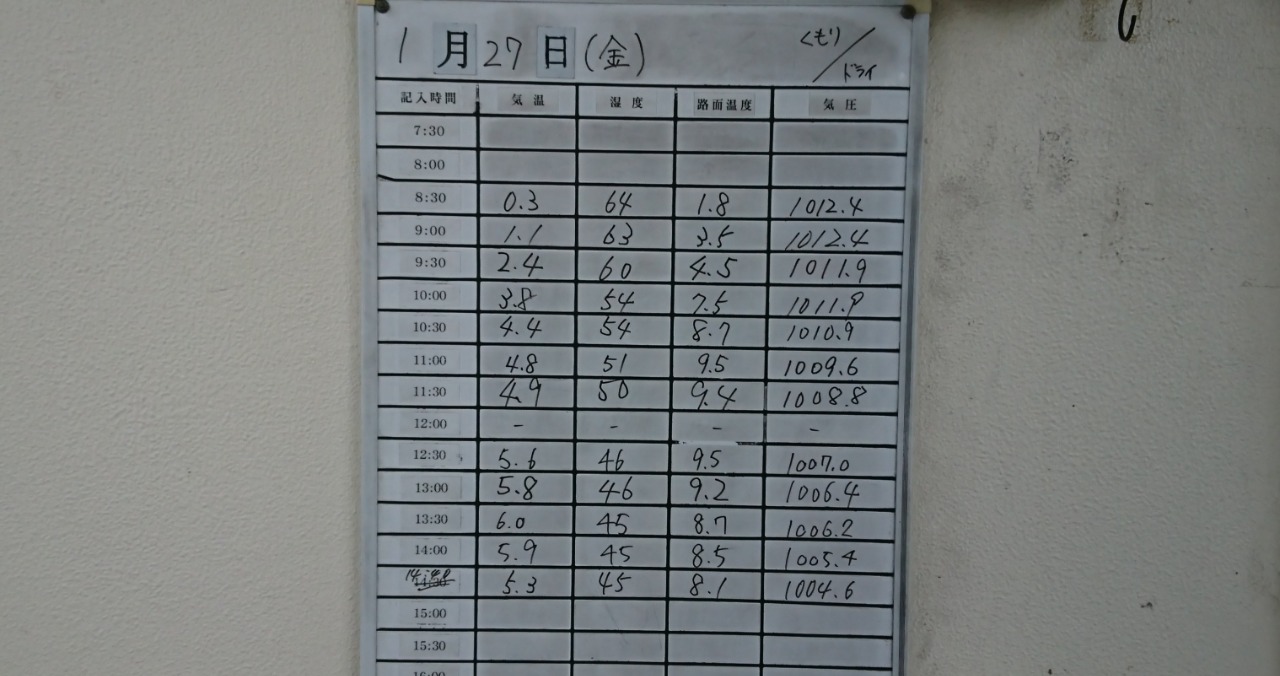 1月27日(金) くもり/ドライ
記入時間 気温 湿度 路面温度 気圧
7:30
8:00
8:30 0.3 64 1.8 1012.4
9:00 1.1 63 3.5 1012.4
9:30 2.4 60 4.5 1011.9
10:00 3.8 54 7.5 1011.9
10:30 4.4 54 8.7 1010.9
11:00 4.8 51 9.5 1009.6
11:30 4.9 50 9.4 1008.8
12:00 - - - -
12:30 5.6 46 9.5 1007.0
13:00 5.8 46 9.2 1006.4
13:30 6.0 45 8.7 1006.2
14:00 5.9 45 8.5 1005.4
5.3 45 8.1 1004.6
15:00
15:30
16:00